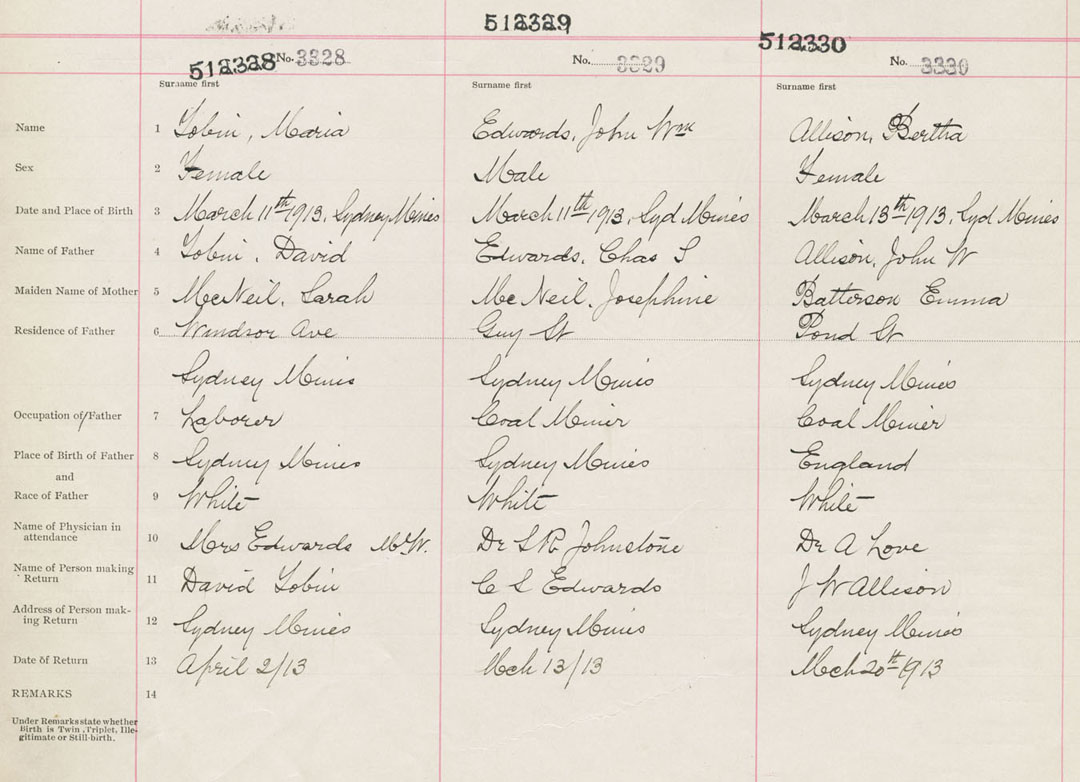 512328 No. 3328
512329
No. 3329
512330
No. 3330
Surname first Surname first Surname first
Name 1 Tobin, Maria Edwards, John Wm Allison, Bertha
Sex 2 Female Male Female
Date and Place of Birth 3 March 11th 1913, Sydney Mines March 11th 1913, Syd Mines March 13th 1913, Syd Mines
Name of Father 4 Tobin, David Edwards, Chas S Allison, John W
Maiden Name of Mother 5 MacNeil, Sarah Mc Neil, Josephine Batterson Emma
Residence of Father 6 Windsor Ave Guy St Pond St
Sydney Mines Sydney Mines Sydney Mines
Occupation of Father 7 Laborer Coal Miner Coal Miner
Place of Birth of Father 8 Sydney Mines Sydney Mines England
and
Race of Father 9 White White White
Name of Physician in
attendance 10 Mrs Edwards M.W. Dr S R Johnstone Dr A Love
Name of Person making
Return 11 David Tobin C S Edwards J W Allison
Address of Person mak-
ing Return 12 Sydney Mines Sydney Mines Sydney Mines
Date of Return 13 April 2/13 Mch 13/13 Mch 20th 1913
REMARKS 14
Under Remarks state whether
Birth is Twin, Triplet, Ille-
gitimate or Still-birth.